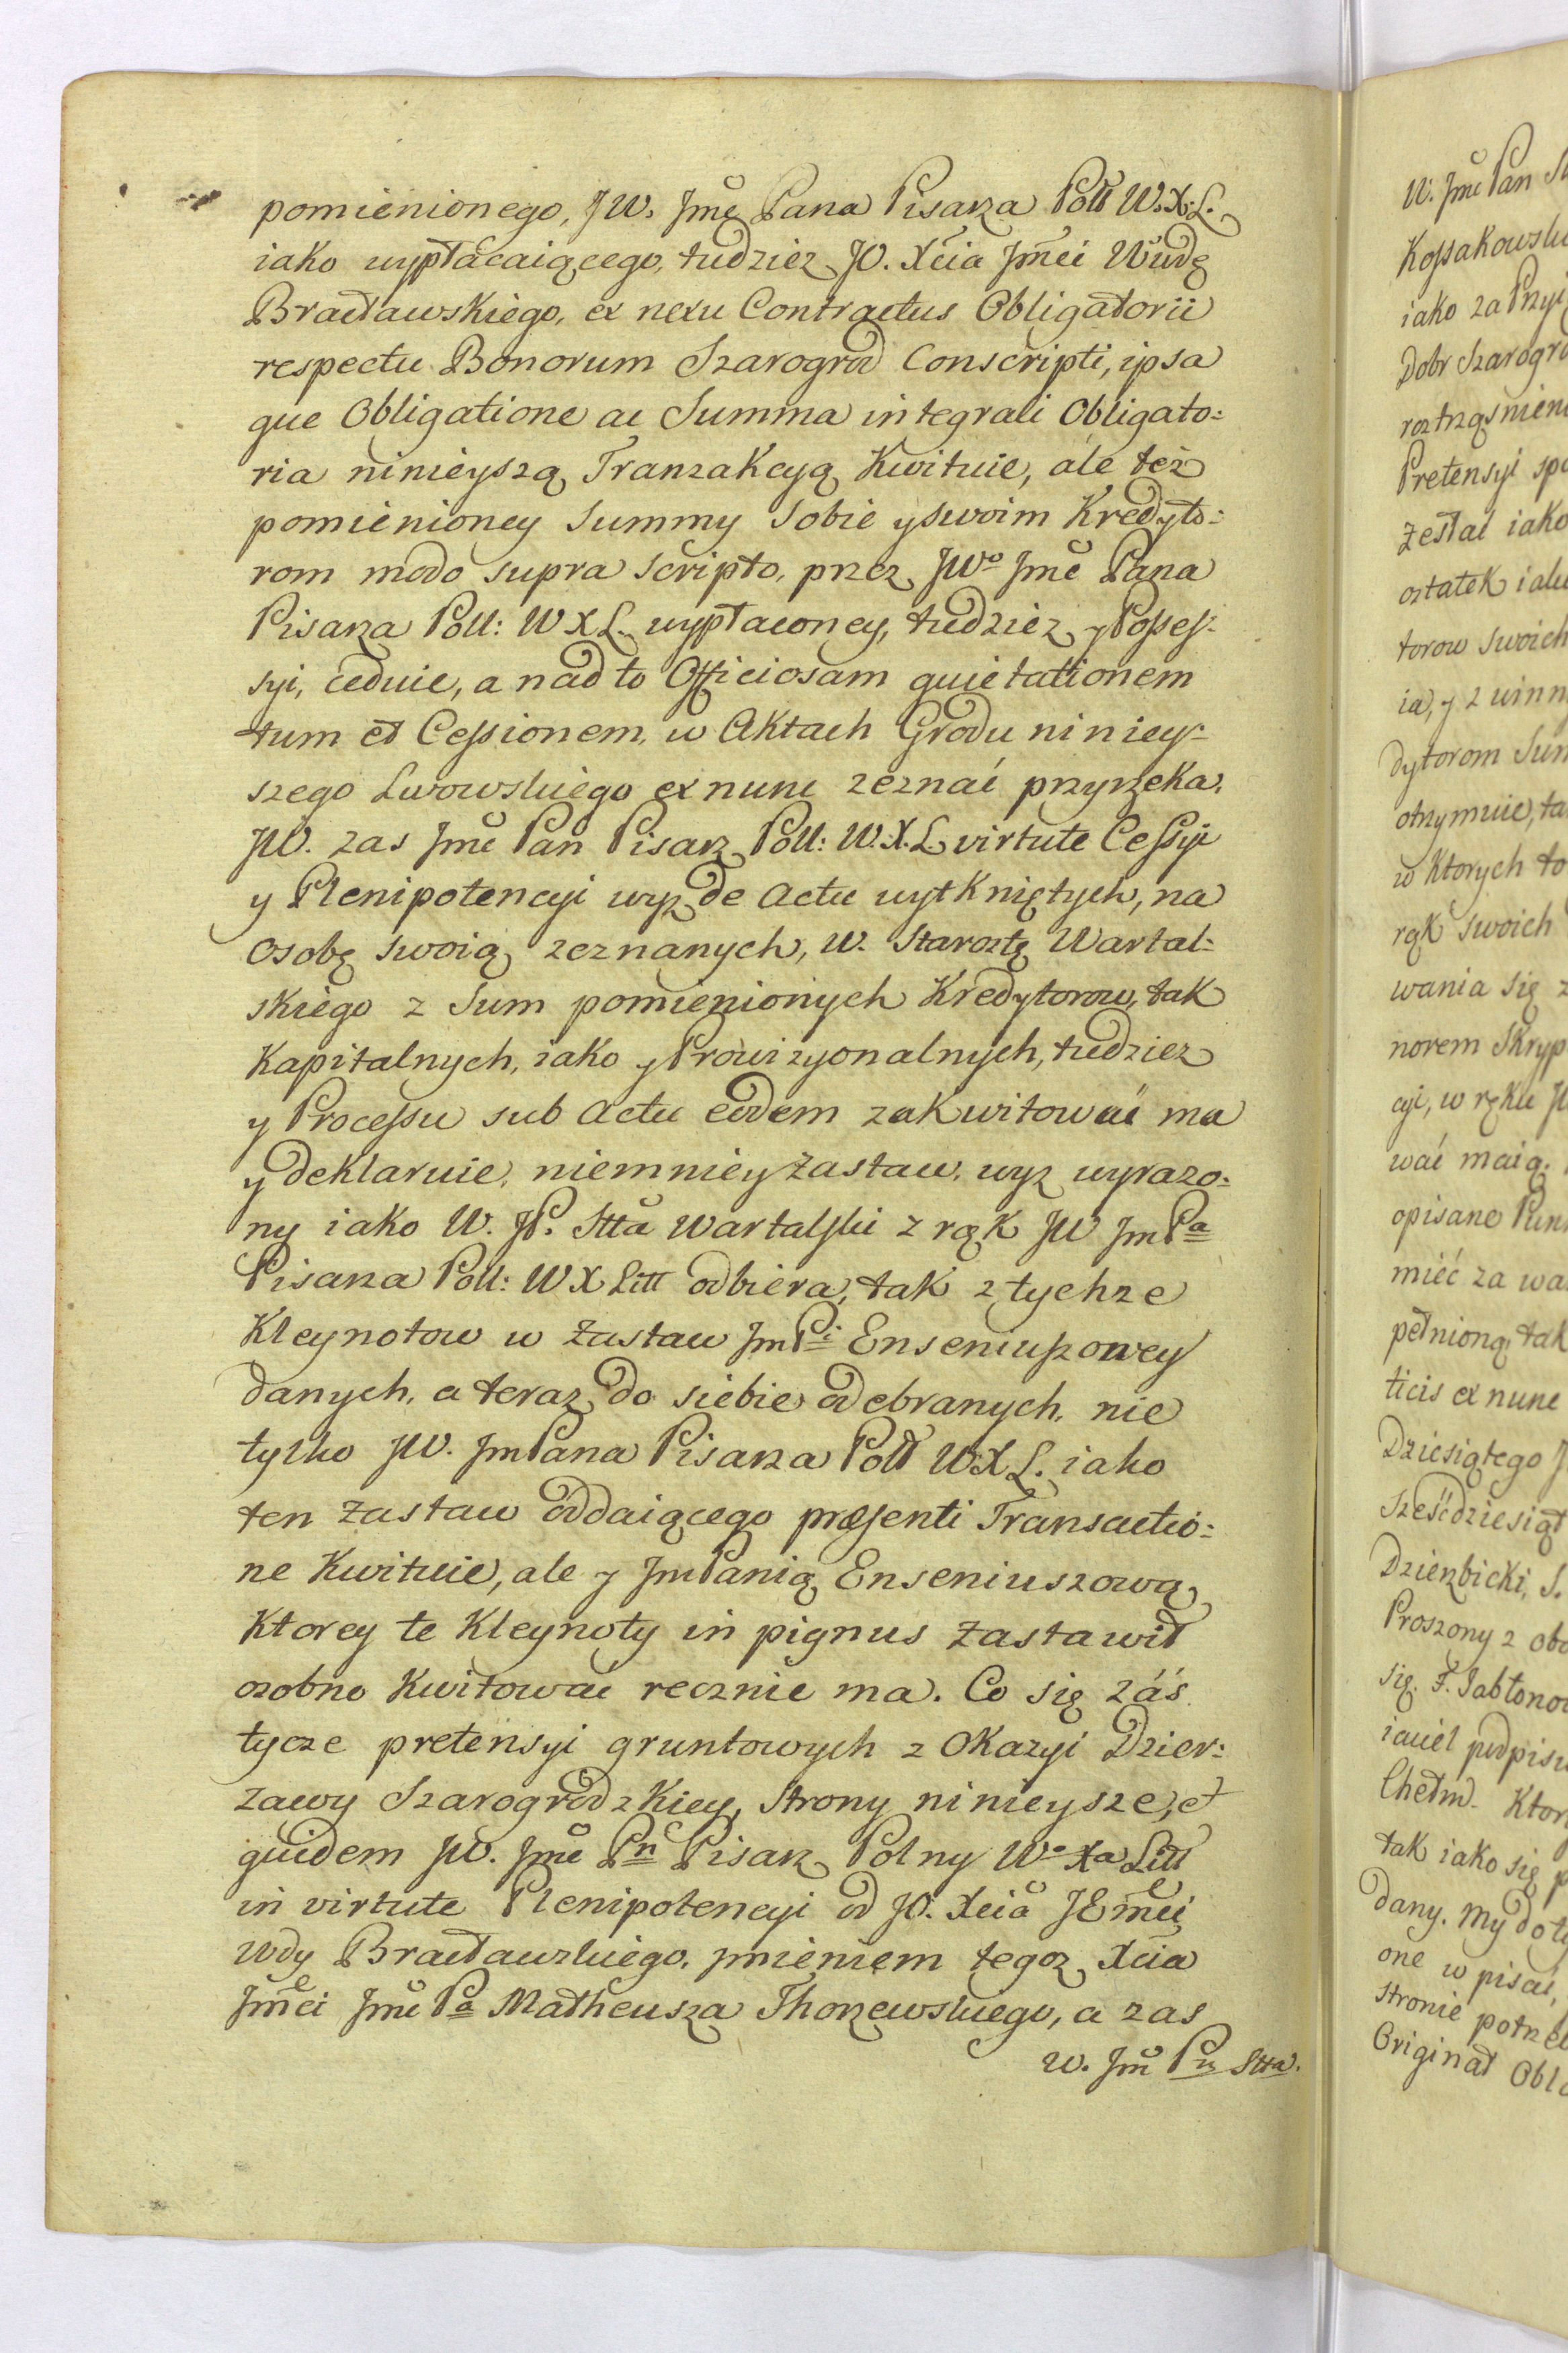 pomienionego, JW. Jmć Pana Pisarza Poll W.X.L.
iako wypłacaiącego, tudziez JO. Xcia Jmći Wwdę
Bracławskiego, ex nexu Contractus Obligatorii
respectu Bonorum Szarogrod Conscripti, ipsa
que Obligatione ac Summa integrali Obligato:
ria ninieyszą Tranzakcyą Kwituie, ale też
pomienioney Summy Sobie y swoim Kredyto:
rom modo supra scripto, przez JWo Jmć Pana
Pisarza Poll: W X L. wypłaconey, tudziez y Possess:
syi, ceduie, a nad to Officiosam quietationem
tum et Cessionem, w Aktach Grodu niniey:
szego Lwowskiego ex nunc zeznać przyrzeka.
JW. zas Jmć Pan Pisarz Poll: W.X.L virtute Cessyi
y Plenipotencyi wyz de Actu wytkniętych, na
Osobę swoią zeznanych, W. Starostę Wartal:
skiego z Sum pomienionych Kredytorow, tak
Kapitalnych, iako y Prowizyonalnych, tudziez
y Processu sub Actu eodem zakwitować ma
y deklaruie, niemniey Zastaw, wyz wyrazo:
ny iako W. JP. Stta Wartalski z rąk JW JmPa
Pisarza Poll: W X Litt odbiera, tak z tychze
Kleynotow w Zastaw JmPi Enseniuszowey
danych, a teraz do siebie odebranych, nie
tylko JW. JmPana Pisarza Poll W.X L. iako
ten Zastaw oddaiącego præsenti Transactio:
ne Kwituie, ale y JmPanią Enseniuszową
Ktorey te Kleynoty in pignus Zastawił
osobno Kwitować recznie ma. Co się zaś
tycze pretensyi gruntowych z Okazyi Dzier:
zawy Szarogrodzkiey, Strony ninieysze, et
quidem JW. Jmć Pn Pisarz Polny Wo Xa Litt
in virtute Plenipotencyi od JO. Xcia JEmći
Wdy Bracławskiego, jmieniem tegoz Xcia
Jmći Jmć Pa Matheusza Thorzewskiego, a zas
W. Jmć Pn Stta.
W. Jmć Pan
Kossakowski
iako za Przy
Dobr Szarogro
roztrząsnieni
Pretensyi
zestał iako
ostatek
torow swoich
ia, y z winn
dytorom Sum
otrzymuie, ta
w Ktorych to
rąk swoich
wania się z
norem Skryp
cyi, w ręku JW
wać maią.
opisane Pun
mieć za wa
pełnioną, tak
ticis ex nunc
Dziesiątego
Sześćdziesiąt
Dzierzbicki, S.
Proszony z obo
się. F. Jabłonow
podpisu
Chełm. Ktor
tak iako się p
dany. My do
one w pisać,
stronie potrzeb
Originał Obla